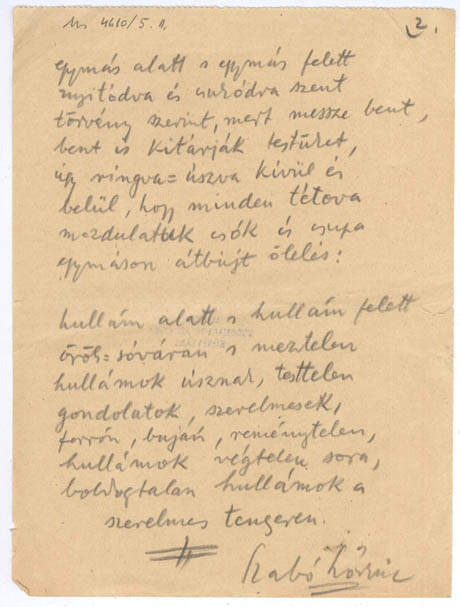 Ms 4610/5. II.
2.
egymás alatt s egymás felett
nyitódva és csukódva szent
törvény szerint, mert messze bent,
bent is kitárják testüket,
úgy ringva-úszva kívül és
belül, hogy minden tétova
mozdulatuk csók és csupa
egymáson átbújt ölelés:
hullám alatt s hullám felett
örök-sóváran s meztelen
hullámok úsznak, testtelen
gondolatok, szerelmesek,
forrón, buján, reménytelen,
hullámok végtelen sora,
boldogtalan hullámok a
szerelmes tengeren.
Szabó Lőrinc